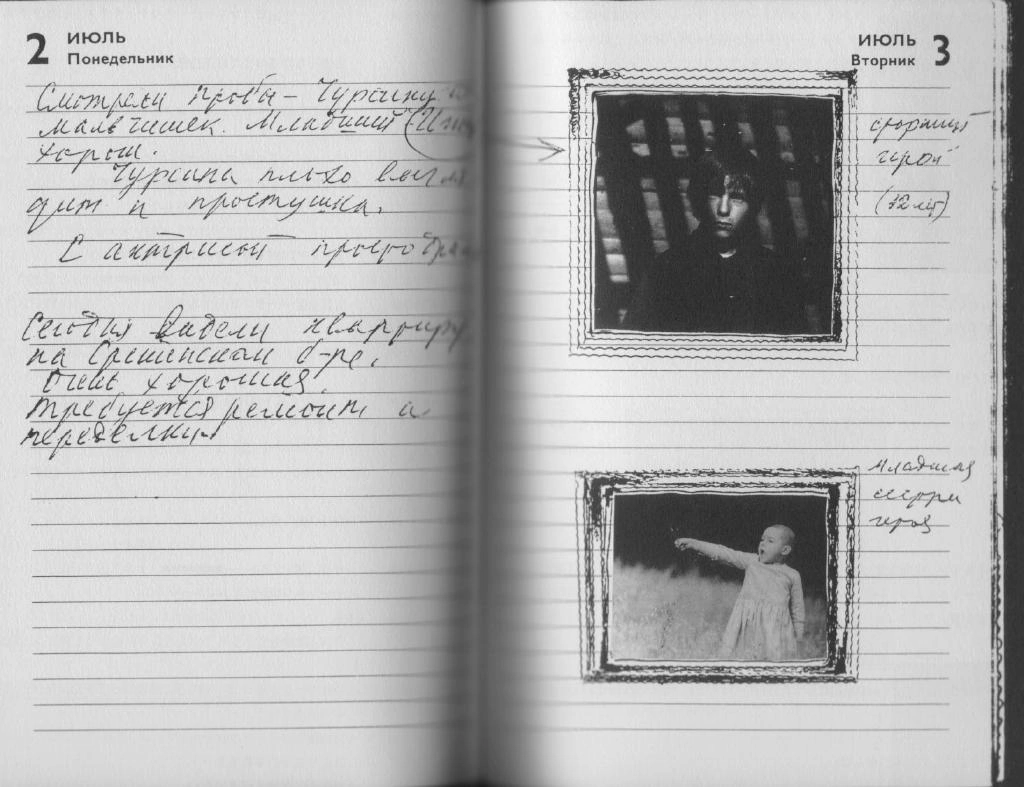 2 ИЮЛЬ
Понедельник
Смотрели пробы – Чурсину и
мальчишек. Младший
хорош.
Чурсина плохо выгля
дит и простушка.
С актрисой
Сегодня видели квартиру
на Сретенском б-ре.
Очень хорошая.
Требуется ремонт и
переделки.
ИЮЛЬ 3
Вторник
старший
герой
(12 лет)
Младшая
сестра
героя